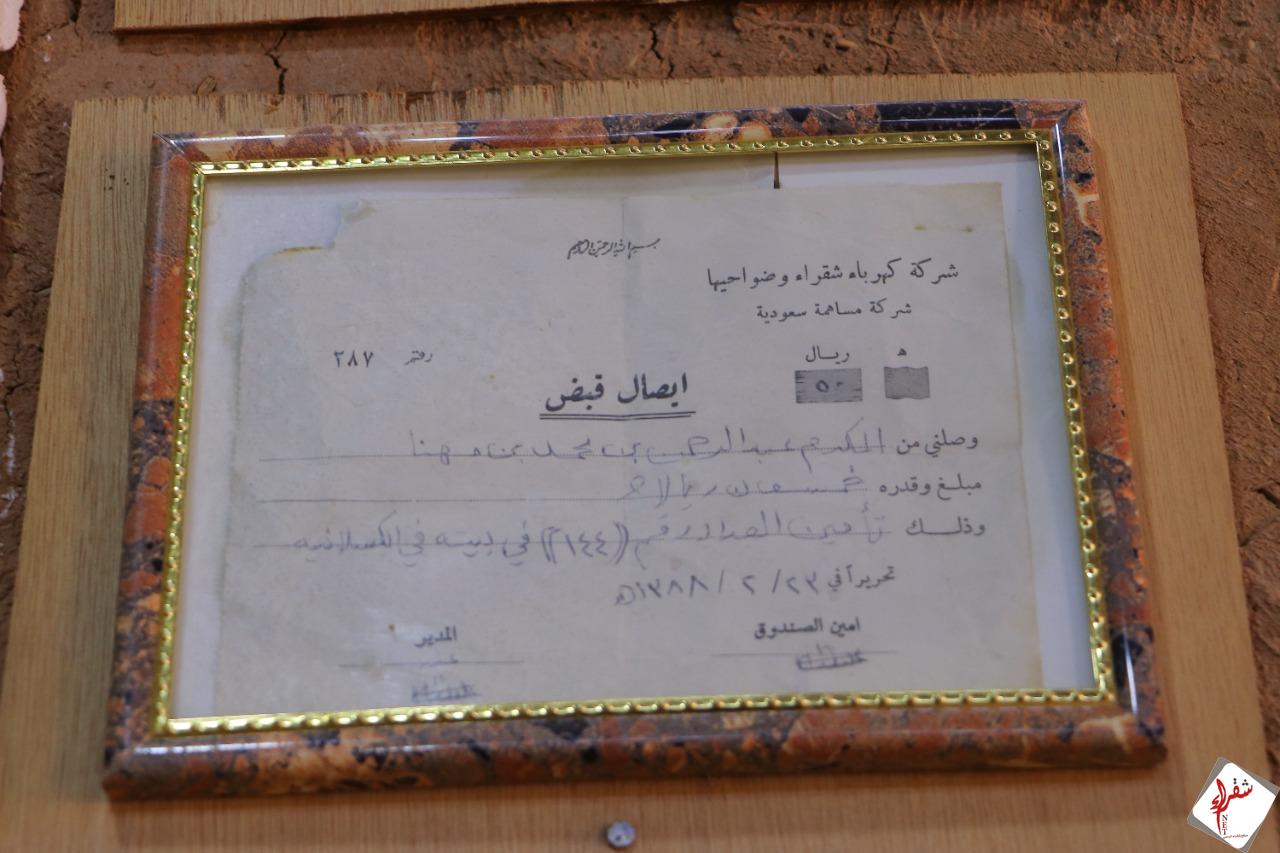 بسم الله الرحمن الرحيم
شركة كهرباء شقراء وضواحيها
شركة مساهمة سعودية
ه ريال
٥٠
رقم ٢٨٧
ايصال قبض
وصلني من المكرم عبدالرحمن بن محمد بن مهنا
مبلغ وقدره خمسون ريال
وذلك تأمين العداد رقم (٢١٤٤) في بيته في
تحريراً في ٢٣ / ٢ / ١٣٨٨ه
امين الصندوق
المدير
شقراء
NET